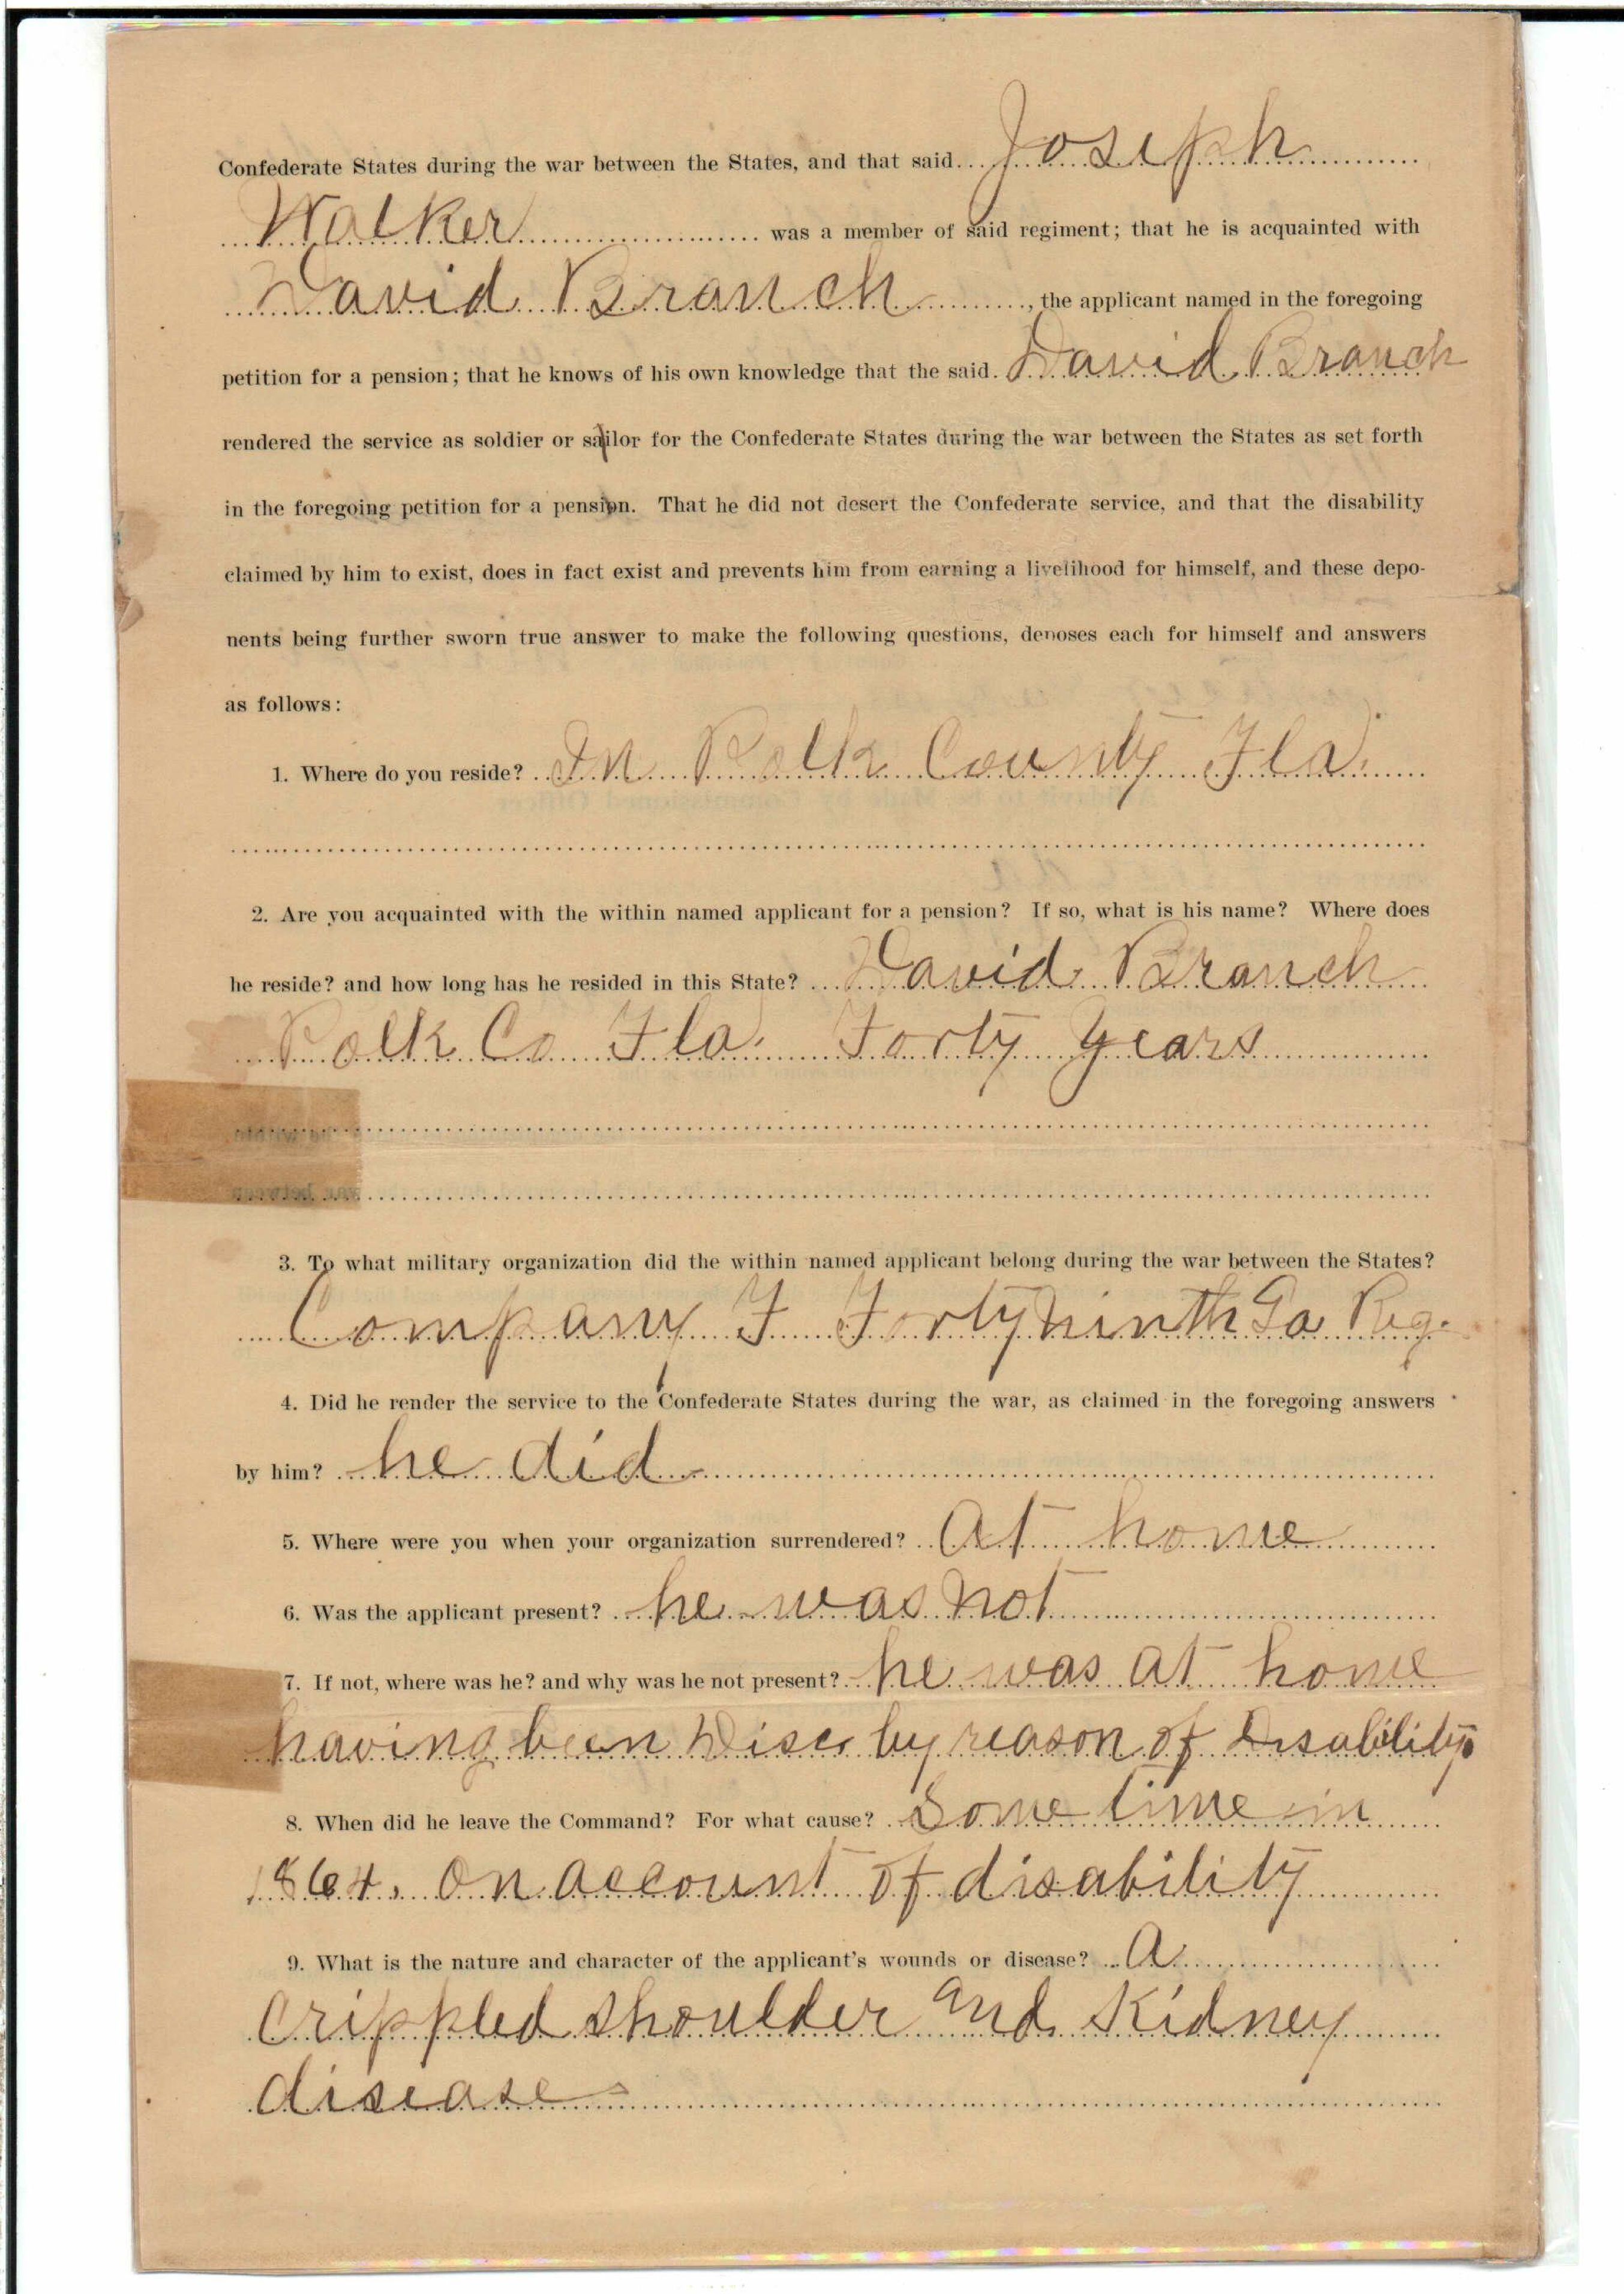 Confederate States during the war between the States, and that said Joseph
Walker was a member of said regiment; that he is acquainted with
David Branch, the applicant named in the foregoing
petition for a pension; that he knows of his own knowledge that the said David Branch
rendered the service as soldier or sailor for the Confederate States during the war between the States as set forth
in the foregoing petition for a pension. That he did not desert the Confederate service, and that the disability
claimed by him to exist, does in fact exist and prevents him from earning a livelihood for himself, and these depo-
nents being further sworn true answer to make the following questions, deposes each for himself and answers
as follows:
1. Where do you reside? In Polk County Fla.
2. Are you acquainted with the within named applicant for a pension? If so, what is his name? Where does
he reside? and how long has he resided in this State? David Branch
Polk Co Fla. Forty Years
3. To what military organization did the within named applicant belong during the war between the States?
Company F Forty ninth Ga Reg.
4. Did he render the service to the Confederate States during the war, as claimed in the foregoing answers
by him? he did
5. Where were you when your organization surrendered? At home
6. Was the applicant present? he was not
7. If not, where was he? and why was he not present? he was at home
having been Disc by reason of Disability
8. When did he leave the Command? For what cause? Some time in
1864. On account of disability
9. What is the nature and character of the applicant's wounds or disease? A
crippled shoulder and Kidney
disease